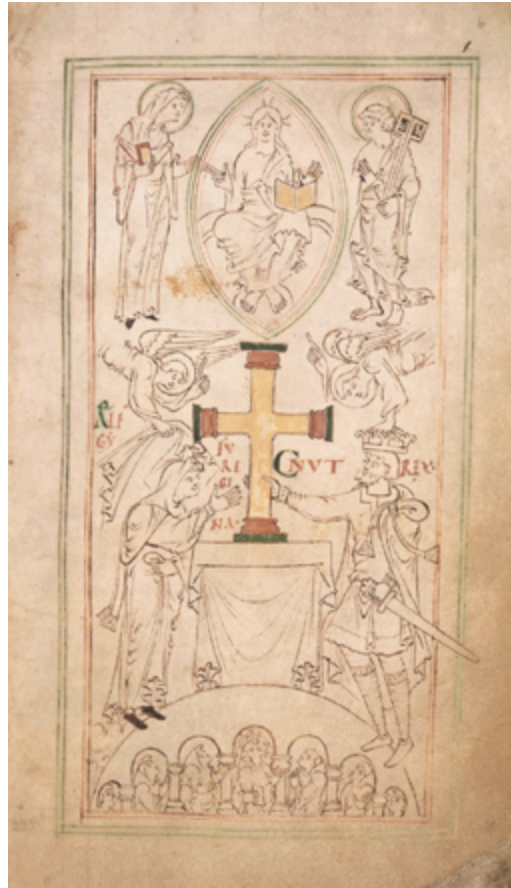 1
ÆLF
GY
FV
RE
GI
NA·
CNVT REX